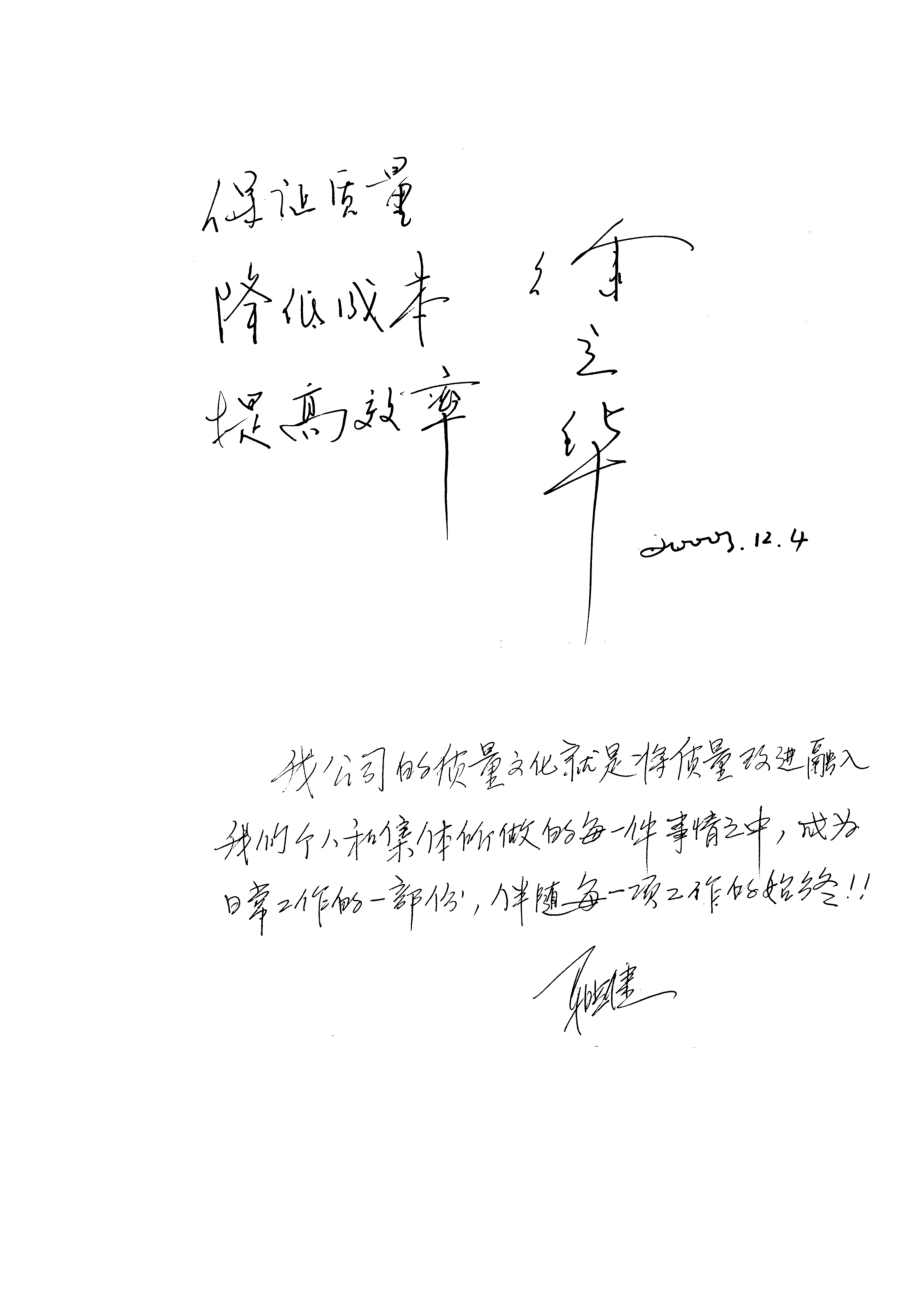 保证质量
降低成本
提高效率
徐立华
2003.12.4
我公司的质量文化就是将质量改进融入
我们个人和集体所做的每一件事情之中，成为
日常工作的一部份，伴随每一项工作的始终!!